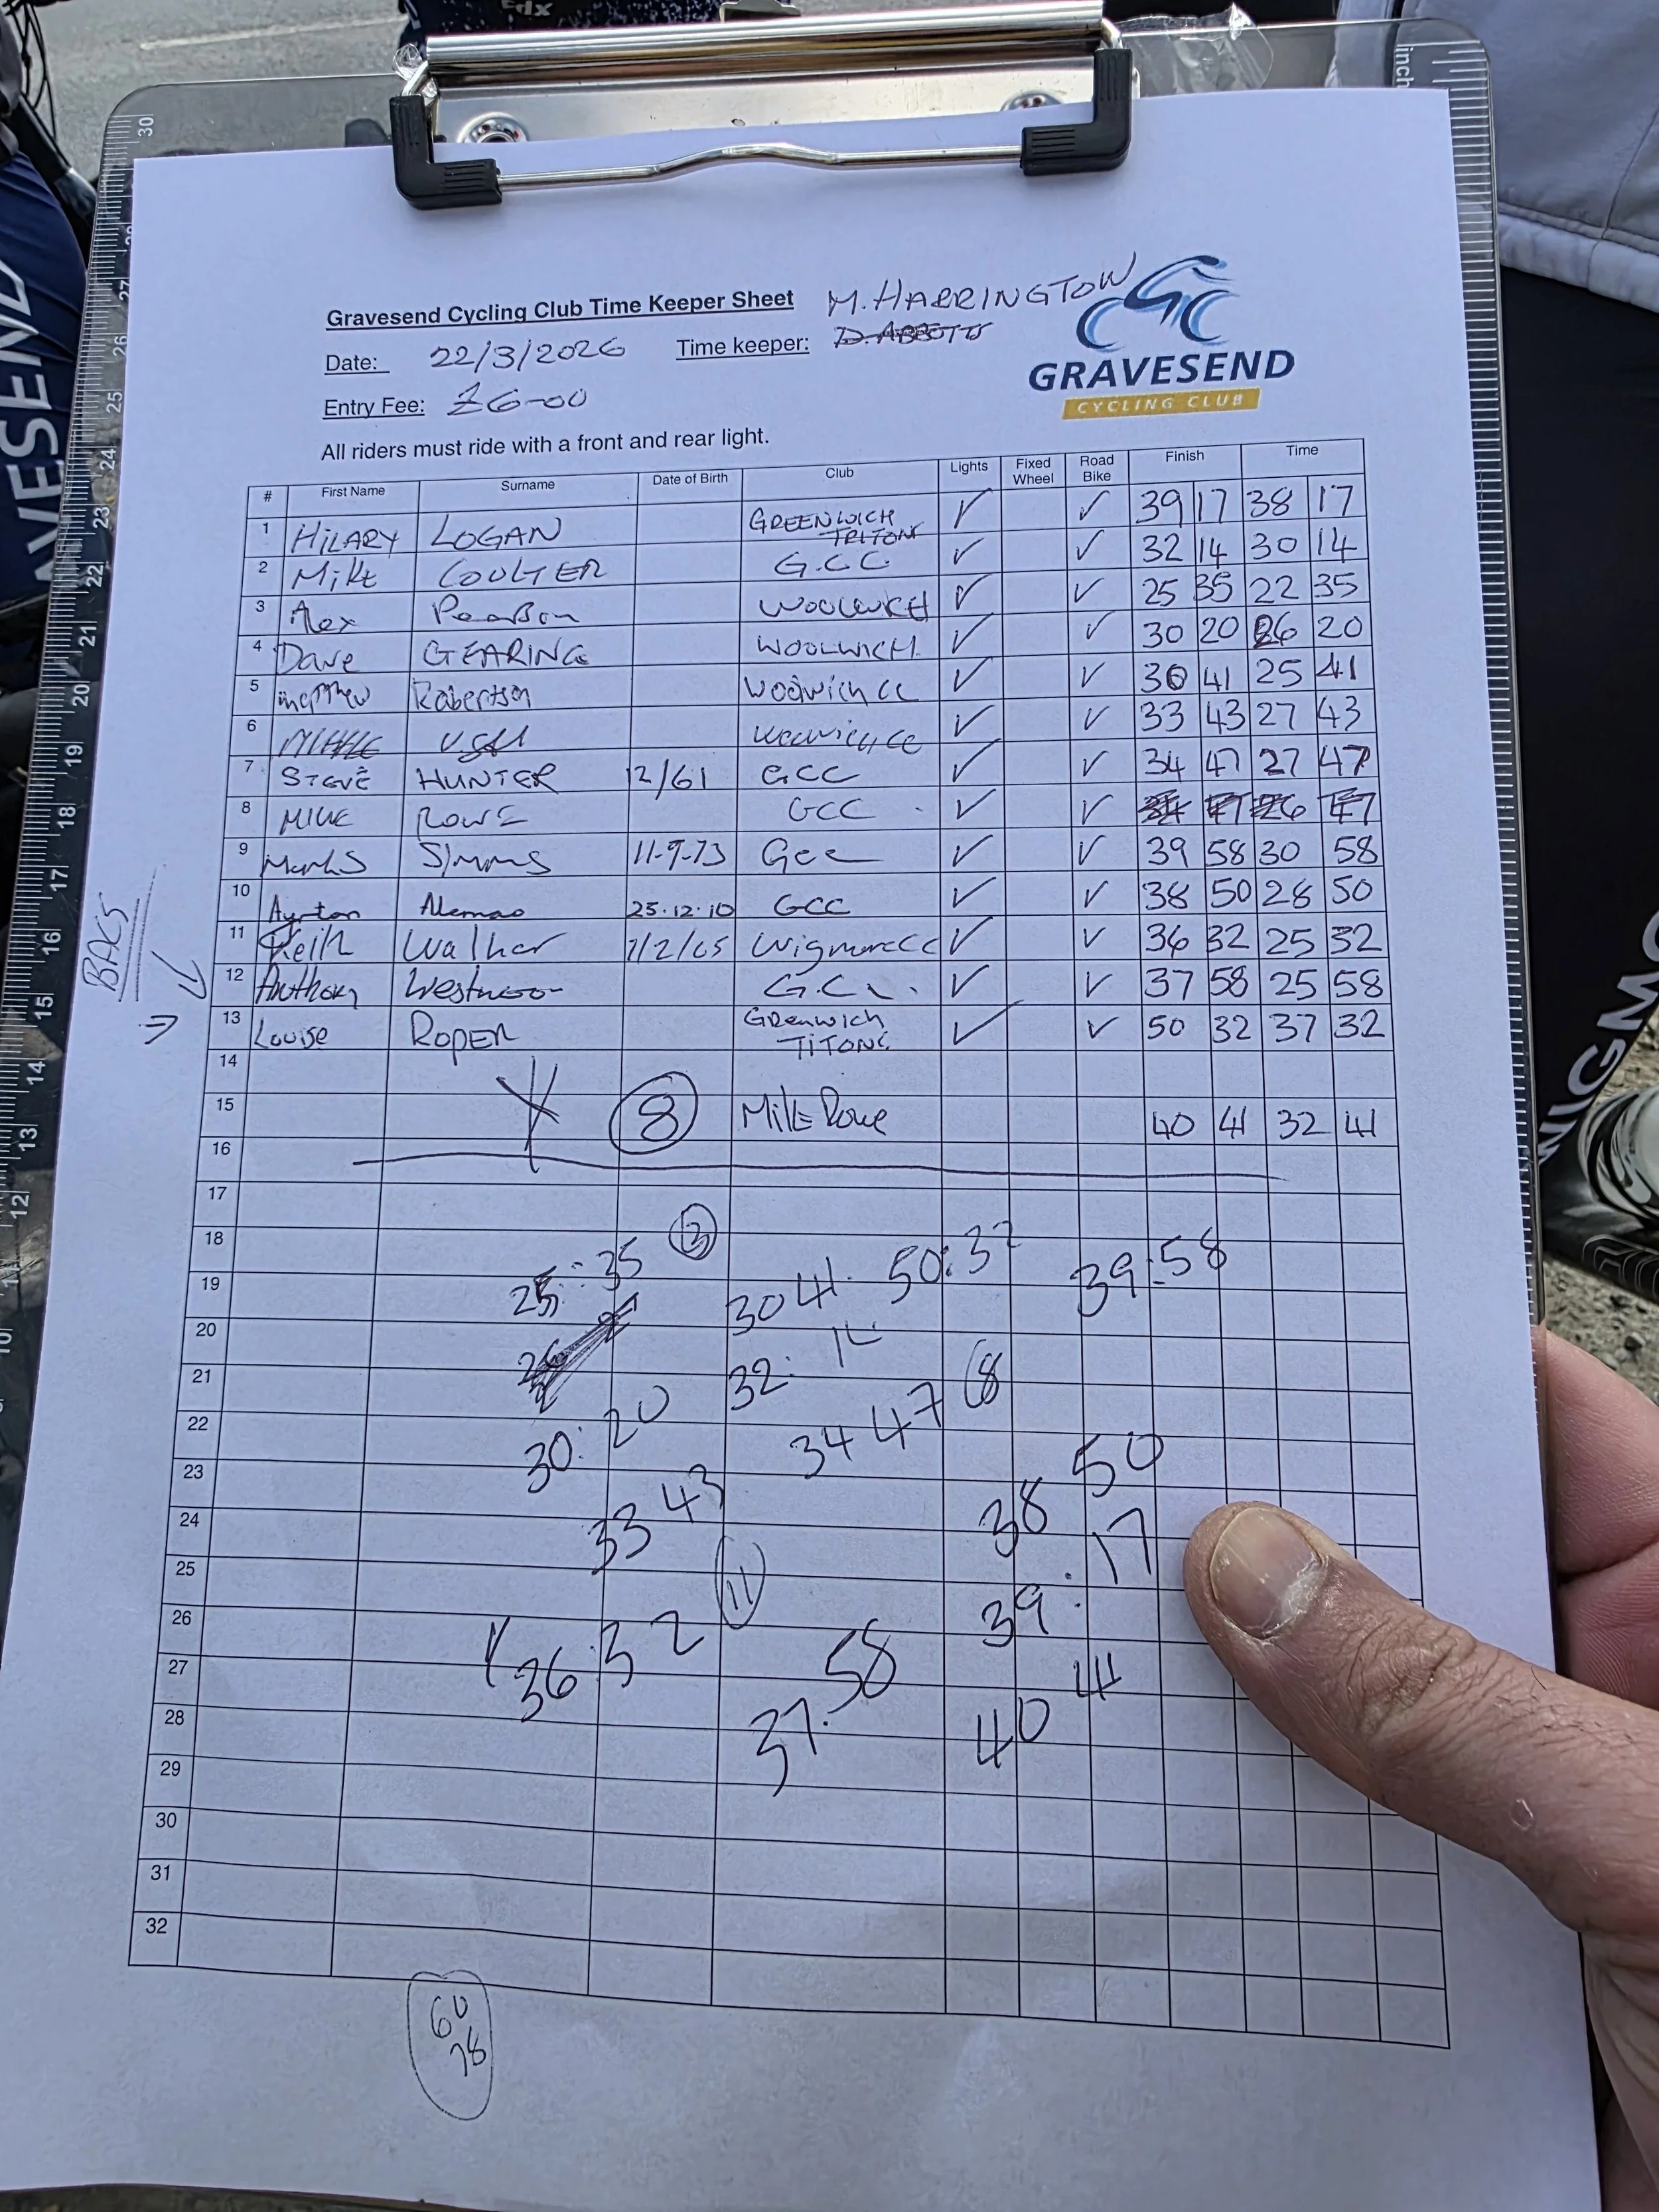 Gravesend Cycling Club Time Keeper Sheet M. HARRINGTON
Date: 22/3/2026 Time keeper: D. ABBOTTS
GRAVESEND
CYCLING CLUB
Entry Fee: £6-00
All riders must ride with a front and rear light.
# First Name Surname Date of Birth Club Lights Fixed Wheel Road Bike Finish Time
1 HILARY LOGAN GREENWICH TRITONS ✓ ✓ 39 17 38 17
2 Mike COULTER G.C.C ✓ ✓ 32 14 30 14
3 Alex Pearson WOOLWICH ✓ ✓ 25 35 22 35
4 Dave GEARING WOOLWICH ✓ ✓ 30 20 26 20
5 Matthew Robertson Woolwich CC ✓ ✓ 30 41 25 41
6 Woolwich CC ✓ ✓ 33 43 27 43
7 STEVE HUNTER 12/61 GCC ✓ ✓ 34 47 27 47
8 MIKE ROWE GCC ✓ ✓ 34 47 26 47
9 Simms 11-9-73 Gcc ✓ ✓ 39 58 30 58
10 Ayrton Alemao 25.12.10 GCC ✓ ✓ 38 50 28 50
11 Keith Walker 7/2/65 Wigmore CC ✓ ✓ 36 32 25 32
12 Anthony Westwood G.C.C. ✓ ✓ 37 58 25 58
13 Louise ROPER Grenwich TITONS ✓ ✓ 50 32 37 32
BACS
14
15 8 Mike Rowe 40 41 32 41
16
17
18
19
20
21
22
23
24
25
26
27
28
29
30
31
32
25:35 3
30 41
50:32
39:58
32:14
30:20
34 47 8
33 43
38 50
39:17
11
36:32
37:58
40 41
60
78
GRAVESEND
WIGMO
inch